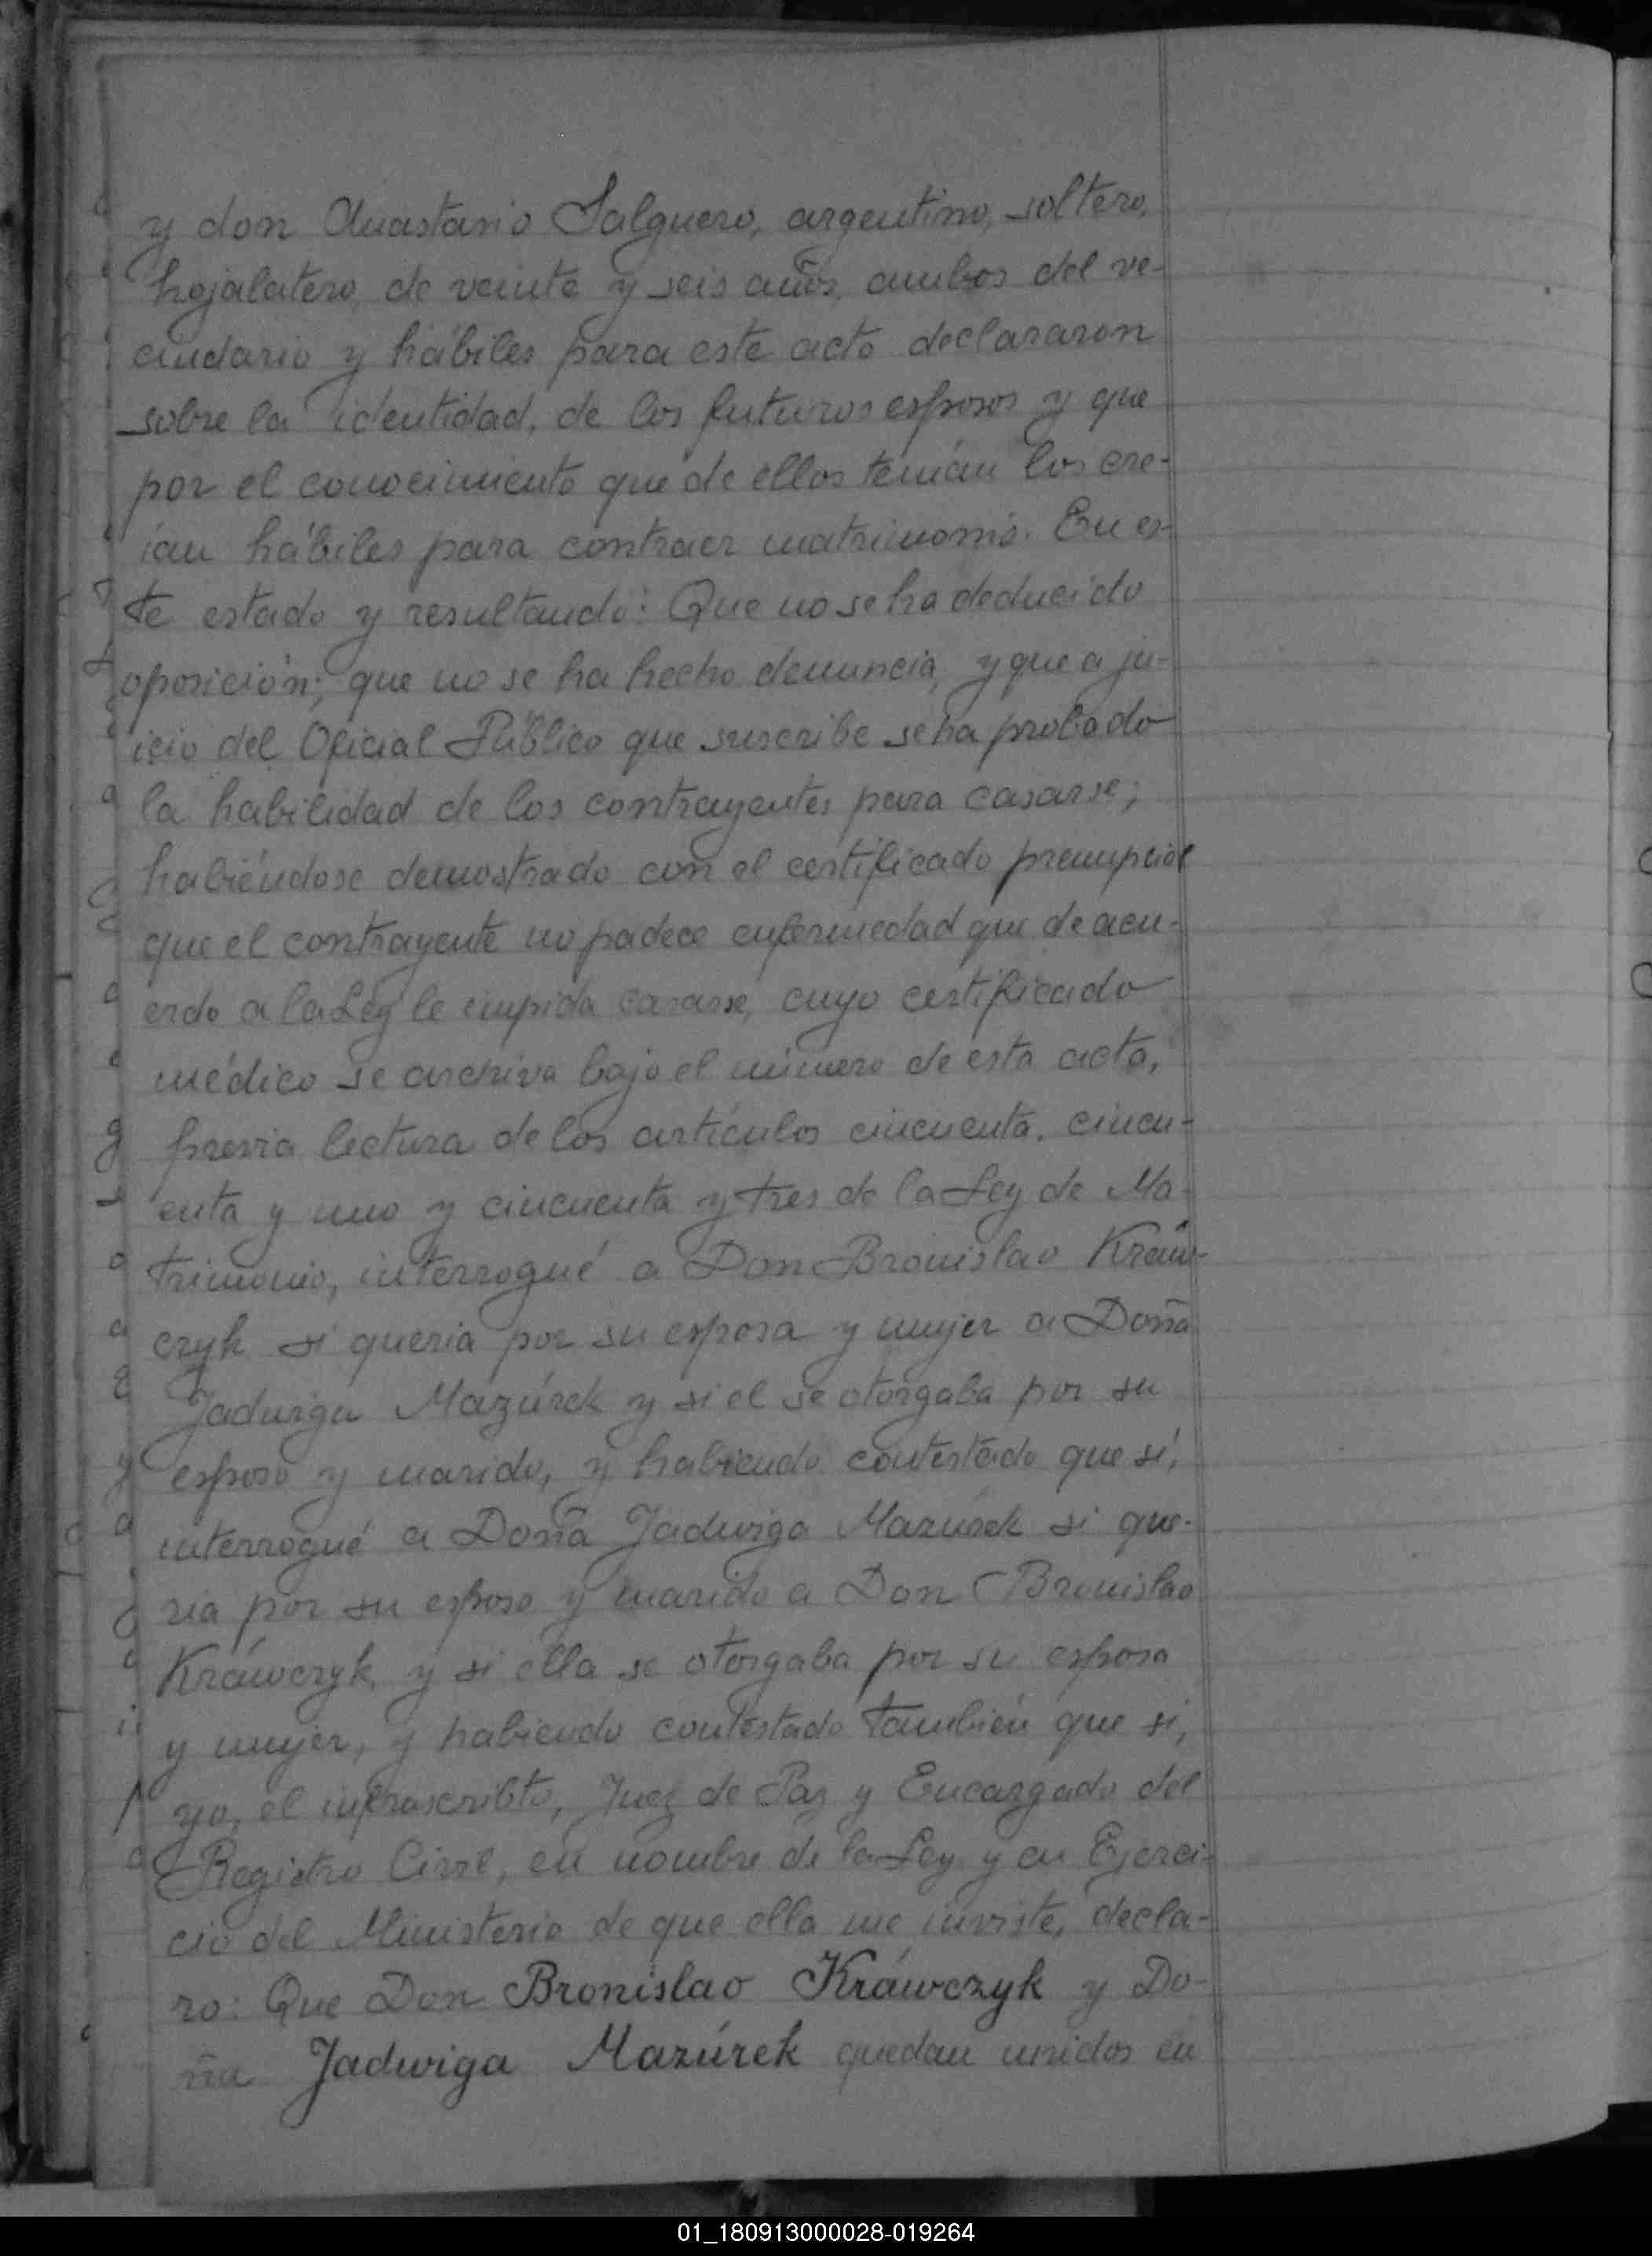 y don Anastasio Salguero, argentino, soltero,
hojalatero, de veinte y seis años, ambos del ve-
cindario y hábiles para este acto declararon
sobre la identidad, de los futuros esposos y que
por el conocimiento que de ellos tenían los cre-
ían hábiles para contraer matrimonio. En es-
te estado y resultando: Que no se ha deducido
oposición; que no se ha hecho denuncia, y que a ju-
icio del Oficial Público que suscribe se ha probado
la habilidad de los contrayentes para casarse;
habiéndose demostrado con el certificado prenupcial
que el contrayente no padece enfermedad que de acu-
erdo a la Ley le impida casarse, cuyo certificado
médico se archiva bajo el número de esta acta,
previa lectura de los artículos cincuenta, cincu-
enta y uno y cincuenta y tres de la Ley de Ma-
trimonio, interrogué a Don Bronislao Kráw-
czyk si queria por su esposa y mujer a Doña
Jadwiga Mazúrek y si el se otorgaba por su
esposo y marido, y habiendo contestado que sí,
interrogué a Doña Jadwiga Mazúrek si que-
ria por su esposo y marido a Don Bronislao
Kráwczyk y si ella se otorgaba por su esposa
y mujer, y habiendo contestado también que si,
yo, el infrascribto, Juez de Paz y Encargado del
Registro Civil, en nombre de la Ley y en Ejerci-
cio del Ministerio de que ella me inviste, decla-
ro: Que Don Bronislao Kráwczyk y Do-
ña Jadwiga Mazúrek quedan unidos en
01_180913000028-019264